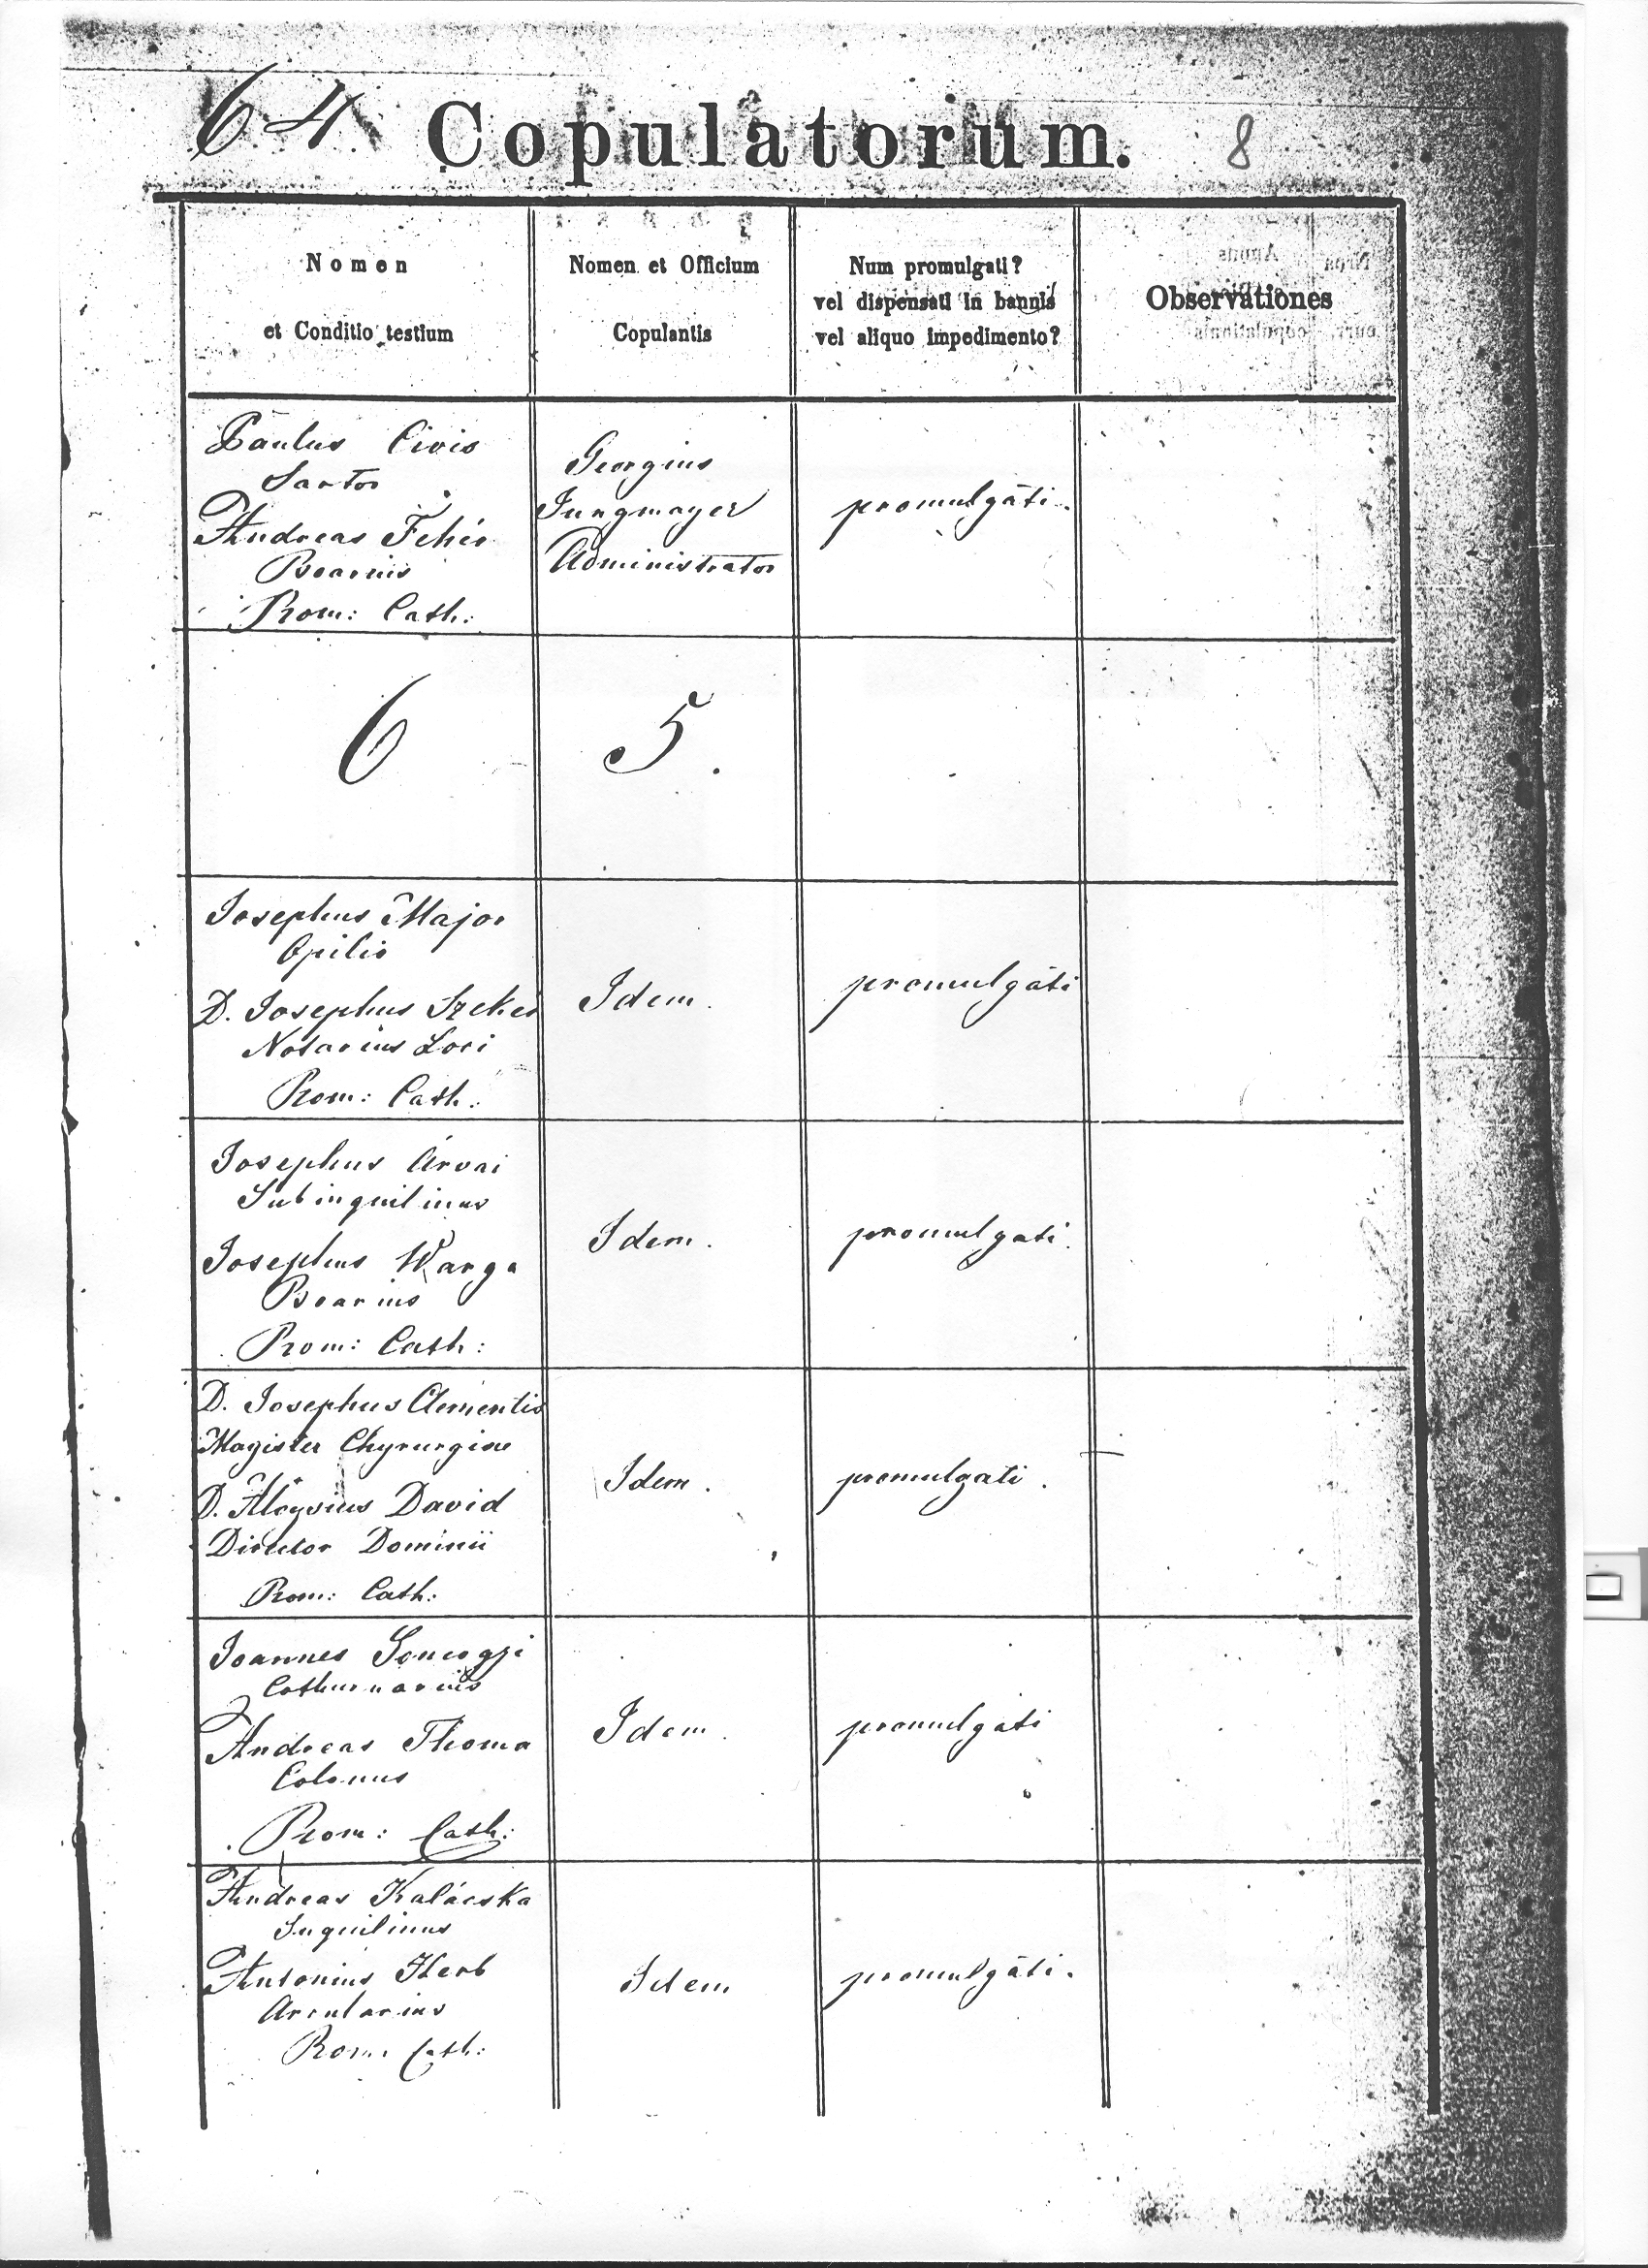 64 Copulatorum. 8
Nomen
et Conditio testium
Nomen et Officium
Copulantis
Num promulgati?
vel dispensati in bannis
vel aliquo impedimento?
Observationes
Paulus Civis
Sartor
Andreas Fehér
Boarius
Rom: Cath:
Georgius
Jungmayer
Administrator
promulgāti.
6 5.
Josephus Major
Opilio
D. Josephus Szekes
Notarius Loci
Rom: Cath:
Idem.
promulgāti
Josephus Árvai
Subinquilinus
Josephus Warga
Boarius
Rom: Cath:
Idem.
promulgati.
D. Josephus Clementis
Magister Chyrurgiae
D. Aloysius David
Director Dominii
Rom: Cath:
Idem.
promulgati.
Joannes
Cothurnarius
Andreas Thoma
Colonus
Rom: Cath:
Idem.
promulgāti
Andreas Kalácska
Inquilinus
Antonius Herb
Arcularius
Rom: Cath:
Idem
promulgāti.